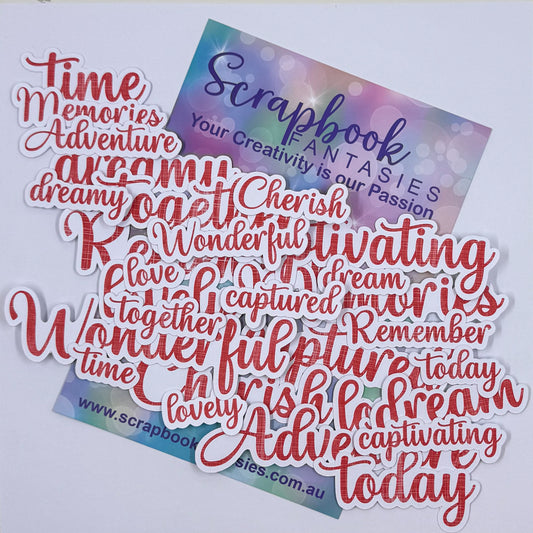 Scrapbook
FANTASIES
Your Creativity is our Passion
time
Memories
Adventure
dreamy
dreamy
Cherish
Together
captivating
Wonderful
love
dream
captured
Memories
together
Remember
Wonderful
time
today
Cherish
dream
lovely
Adventure
captivating
today
www.scrapbookfantasies.com.au